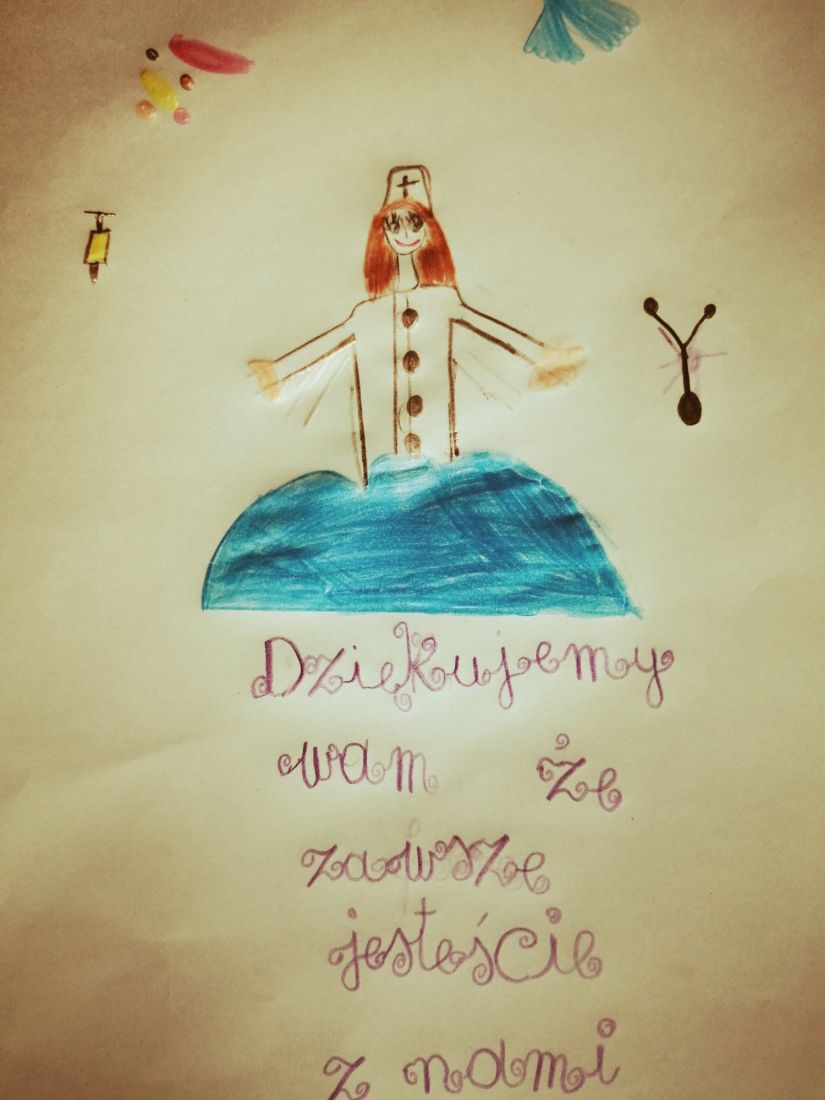 Dziękujemy
wam że
zawsze
jesteście
z nami